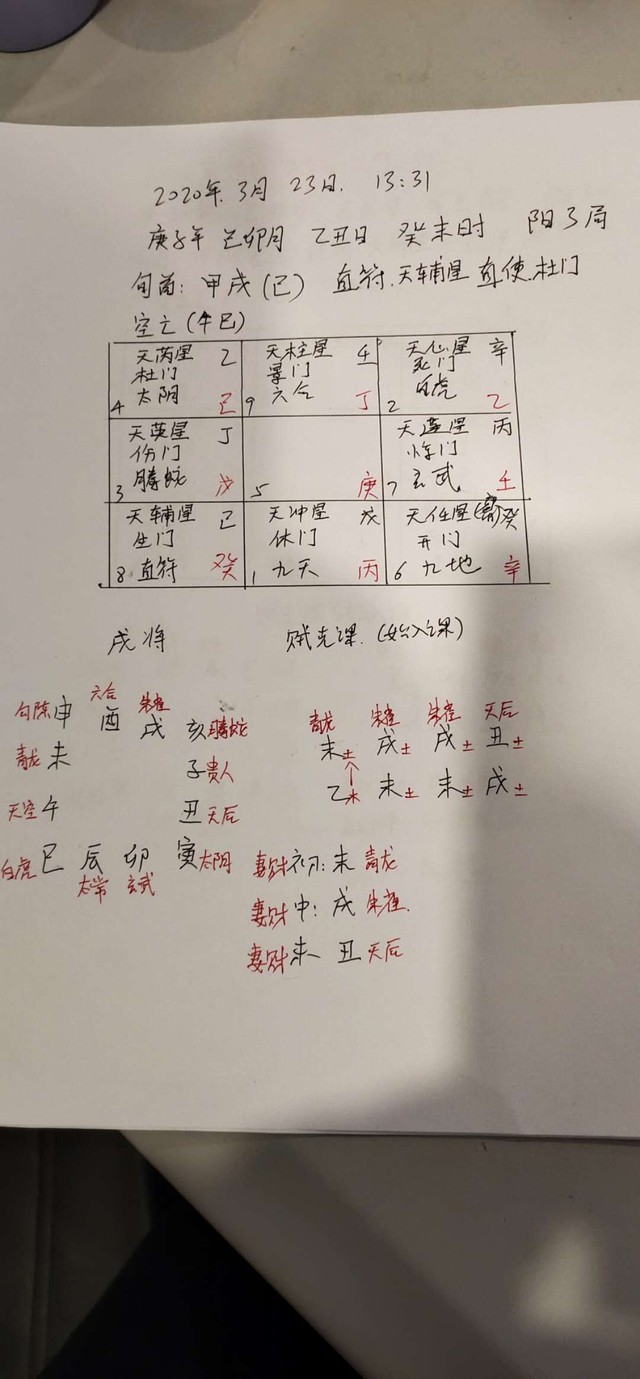 2020年.3月 23日. 13:31
庚子年 己卯月 乙丑日 癸未时 阳3局
旬首: 甲戌(己) 直符.天辅星 直使.杜门
空亡(午巳)
天芮星 乙 天柱星 壬 天心星 辛
杜门 景门 死门
4 太阴 己 9 六合 丁 2 白虎 乙
天英星 丁 天蓬星 丙
伤门 惊门
3 腾蛇 戊 5 庚 7 玄武 壬
天辅星 己 天冲星 戊 天任星(寄)癸
生门 休门 开门
8 直符 癸 1 九天 丙 6 九地 辛
戌将 贼克课.(始入课)
勾陈申 六合酉 朱雀戌 亥腾蛇
青龙未 子贵人
天空午 丑天后
白虎巳 辰 卯 寅太阴
太常 玄武
青龙 朱雀 朱雀 天后
未土 戌土 戌土 丑土
↑
乙木 未土 未土 戌土
妻财初: 未 青龙
妻财中: 戌 朱雀.
妻财末 丑 天后